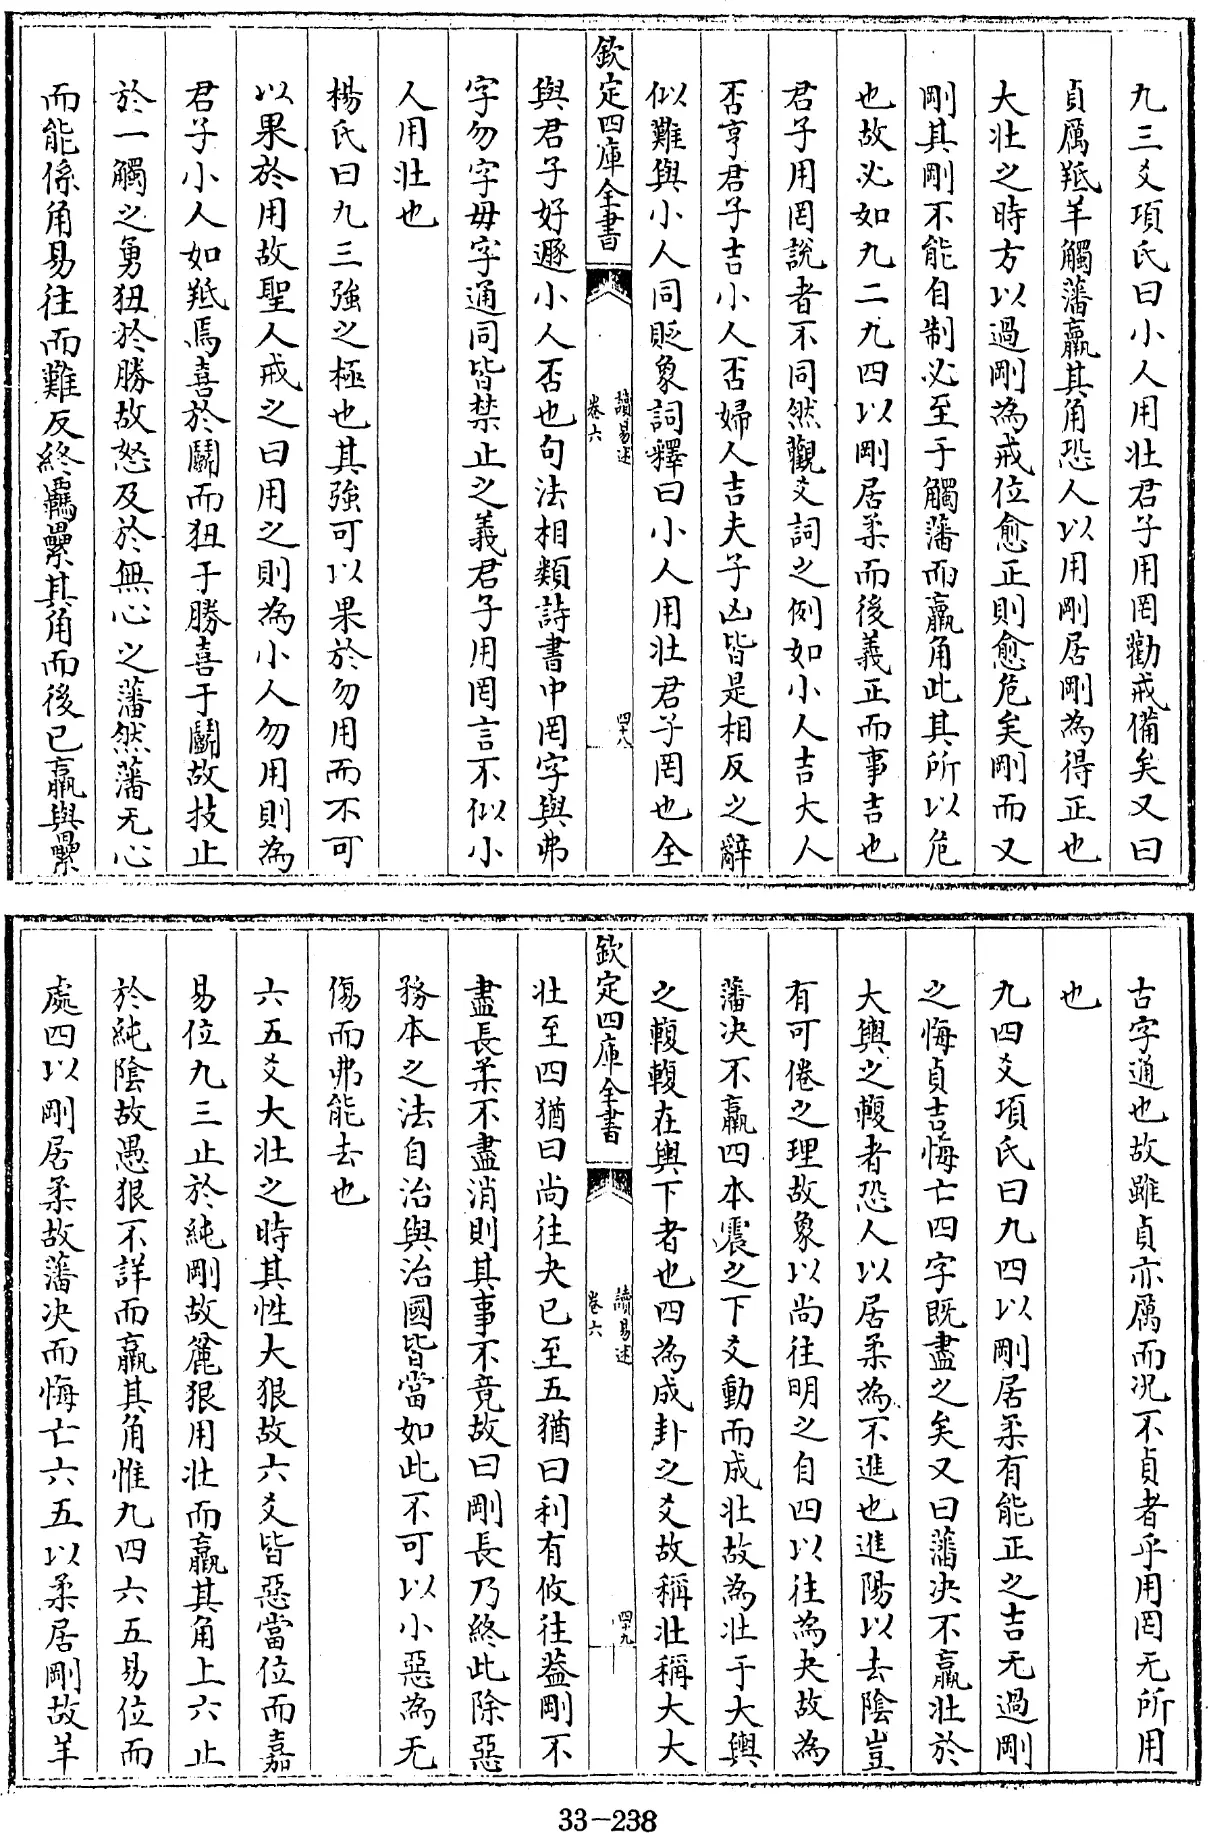 九三爻項氏曰小人用壯君子用罔勸戒備矣又曰
貞厲羝羊觸藩羸其角恐人以用剛居剛為得正也
大壯之時方以過剛為戒位愈正則愈危矣剛而又
剛其剛不能自制必至于觸藩而羸角此其所以危
也故必如九二九四以剛居柔而後義正而事吉也
君子用罔說者不同然觀爻詞之例如小人吉大人
否亨君子吉小人否婦人吉夫子凶皆是相反之辭
似難與小人同貶象詞釋曰小人用壯君子罔也全
欽定四庫全書
讀易述
卷六
四十八
與君子好遯小人否也句法相類詩書中罔字與弗
字勿字毋字通同皆禁止之義君子用罔言不似小
人用壯也
楊氏曰九三強之極也其強可以果於勿用而不可
以果於用故聖人戒之曰用之則為小人勿用則為
君子小人如羝焉喜於鬭而狃于勝喜于鬭故技止
於一觸之勇狃於勝故怒及於無心之藩然藩无心
而能係角易往而難反終羈纍其角而後已羸與纍
古字通也故雖貞亦厲而况不貞者乎用罔无所用
也
九四爻項氏曰九四以剛居柔有能正之吉无過剛
之悔貞吉悔亡四字既盡之矣又曰藩决不羸壯於
大輿之輹者恐人以居柔為不進也進陽以去陰豈
有可倦之理故象以尚往明之自四以往為夬故為
藩决不羸四本震之下爻動而成壯故為壯于大輿
之輹輹在輿下者也四為成卦之爻故稱壯稱大大
欽定四庫全書
讀易述
卷六
四十九
壯至四猶曰尚往夬已至五猶曰利有攸往葢剛不
盡長柔不盡消則其事不竟故曰剛長乃終此除惡
務本之法自治與治國皆當如此不可以小惡為无
傷而弗能去也
六五爻大壯之時其性大狠故六爻皆惡當位而嘉
易位九三止於純剛故麄狠用壯而羸其角上六止
於純陰故愚狠不詳而羸其角惟九四六五易位而
處四以剛居柔故藩决而悔亡六五以柔居剛故羊
33-238